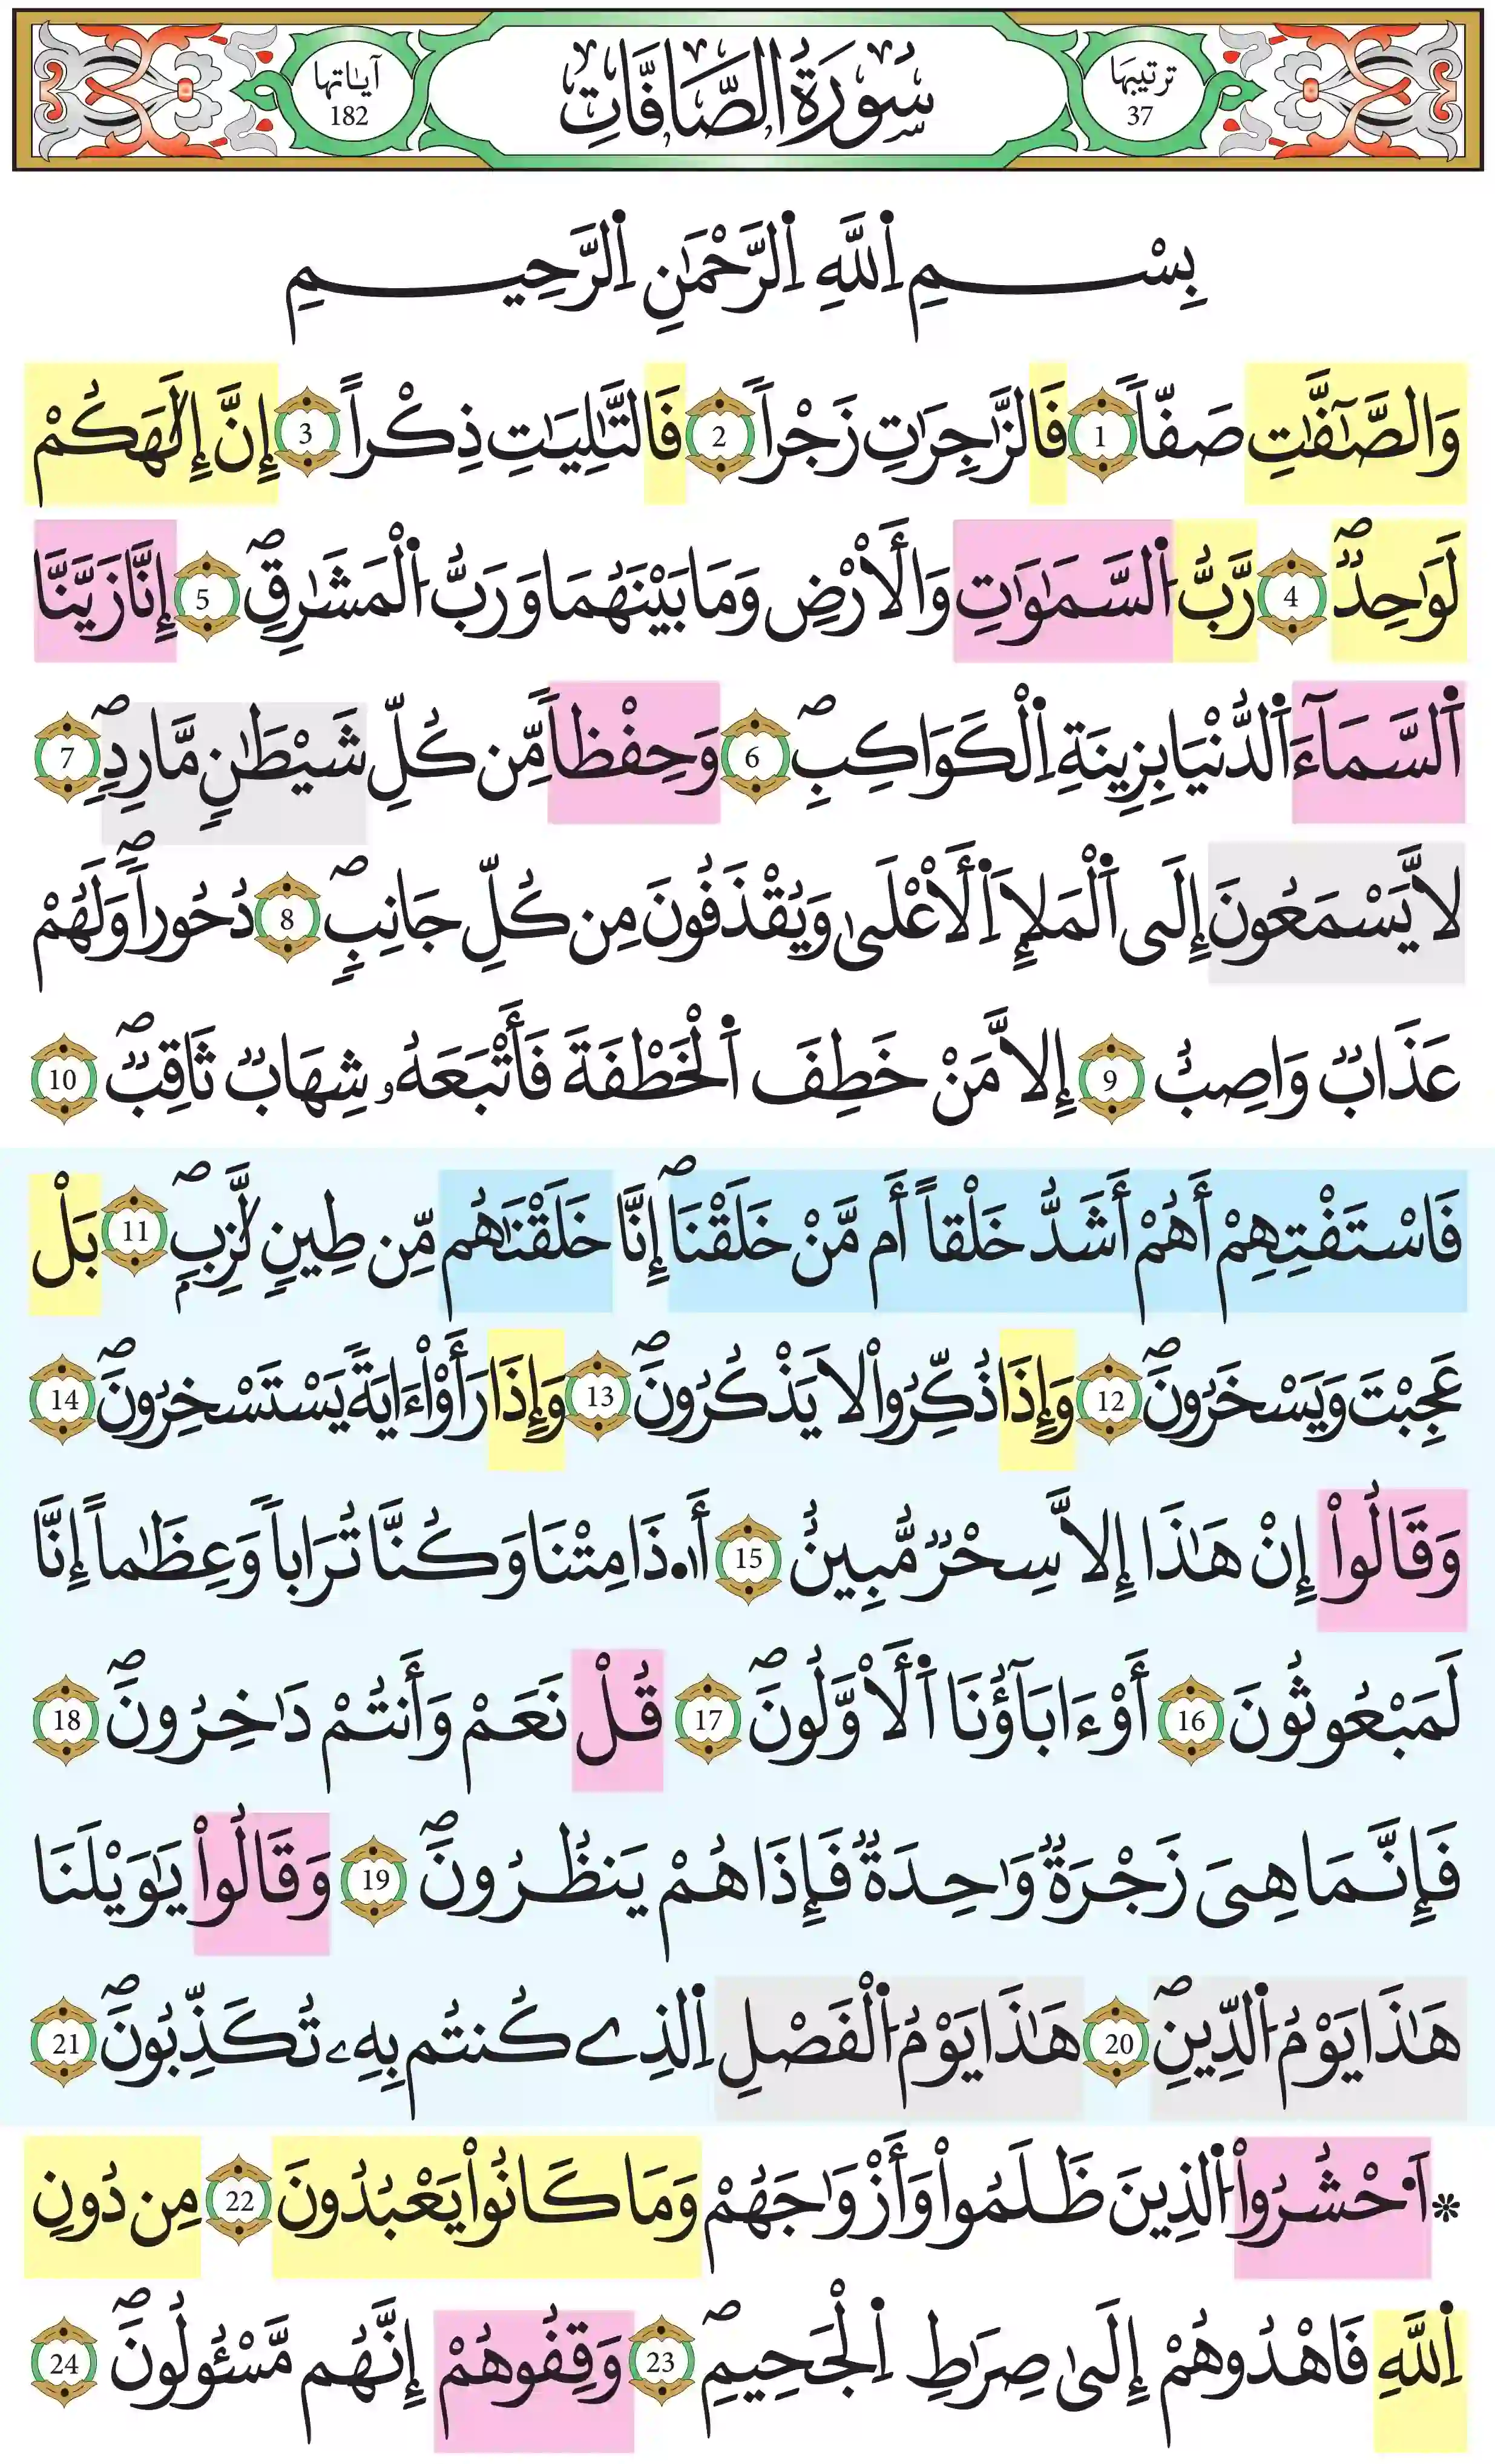 ترتيبها 37
سُورَةُ الصَّافَّاتِ
آياتها 182
بِسْمِ اِ۬للَّهِ اِ۬لرَّحْمَٰنِ اِ۬لرَّحِيمِ
وَالصَّٰٓفَّٰتِ صَفّاٗ 1 فَالزَّٰجِرَٰتِ زَجْراٗ 2 فَالتَّٰلِيَٰتِ ذِكْراً 3 إِنَّ إِلَٰهَكُمْ
لَوَٰحِدٞۖ 4 رَّبُّ اُ۬لسَّمَٰوَٰتِ وَالَارْضِ وَمَا بَيْنَهُمَا وَرَبُّ اُ۬لْمَشَٰرِقِۖ 5 إِنَّا زَيَّنَّا
اَ۬لسَّمَآءَ اَ۬لدُّنْيَا بِزِينَةِ اِ۬لْكَوَاكِبِۖ 6 وَحِفْظاٗ مِّن كُلِّ شَيْطَٰنٖ مَّارِدٖۖ 7
لَّا يَسْمَعُونَ إِلَى اَ۬لْمَلَإِ اِ۬لَاعْلَىٰ وَيُقْذَفُونَ مِن كُلِّ جَانِبٖۖ 8 دُحُوراٗۖ وَلَهُمْ
عَذَابٞ وَاصِبٌ 9 إِلَّا مَنْ خَطِفَ اَ۬لْخَطْفَةَ فَأَتْبَعَهُۥ شِهَابٞ ثَاقِبٞۖ 10
فَاسْتَفْتِهِمْ أَهُمْ أَشَدُّ خَلْقاً أَم مَّنْ خَلَقْنَاۖ إِنَّا خَلَقْنَٰهُم مِّن طِينٖ لَّٰزِبِۢۖ 11 بَلْ
عَجِبْتَ وَيَسْخَرُونَۖ 12 وَإِذَا ذُكِّرُواْ لَا يَذْكُرُونَۖ 13 وَإِذَا رَأَوْاْ ءَايَةٗ يَسْتَسْخِرُونَۖ 14
وَقَالُواْ إِنْ هَٰذَا إِلَّا سِحْرٞ مُّبِينٌ 15 أَ.ذَا مِتْنَا وَكُنَّا تُرَاباٗ وَعِظَٰماً إِنَّا
لَمَبْعُوثُونَ 16 أَوْ ءَابَآؤُنَا اَ۬لَاوَّلُونَۖ 17 قُلْ نَعَمْ وَأَنتُمْ دَٰخِرُونَۖ 18
فَإِنَّمَا هِيَ زَجْرَةٞ وَٰحِدَةٞ فَإِذَا هُمْ يَنظُرُونَۖ 19 وَقَالُواْ يَٰوَيْلَنَا
هَٰذَا يَوْمُ اُ۬لدِّينِۖ 20 هَٰذَا يَوْمُ اُ۬لْفَصْلِ اِ۬لذِے كُنتُم بِهِۦ تُكَذِّبُونَۖ 21
* اَ۟حْشُرُواْ اُ۬لذِينَ ظَلَمُواْ وَأَزْوَٰجَهُمْ وَمَا كَانُواْ يَعْبُدُونَ 22 مِن دُونِ
اِ۬للَّهِ فَاهْدُوهُمْ إِلَىٰ صِرَٰطِ اِ۬لْجَحِيمِۖ 23 وَقِفُوهُمْ إِنَّهُم مَّسْـُٔولُونَۖ 24